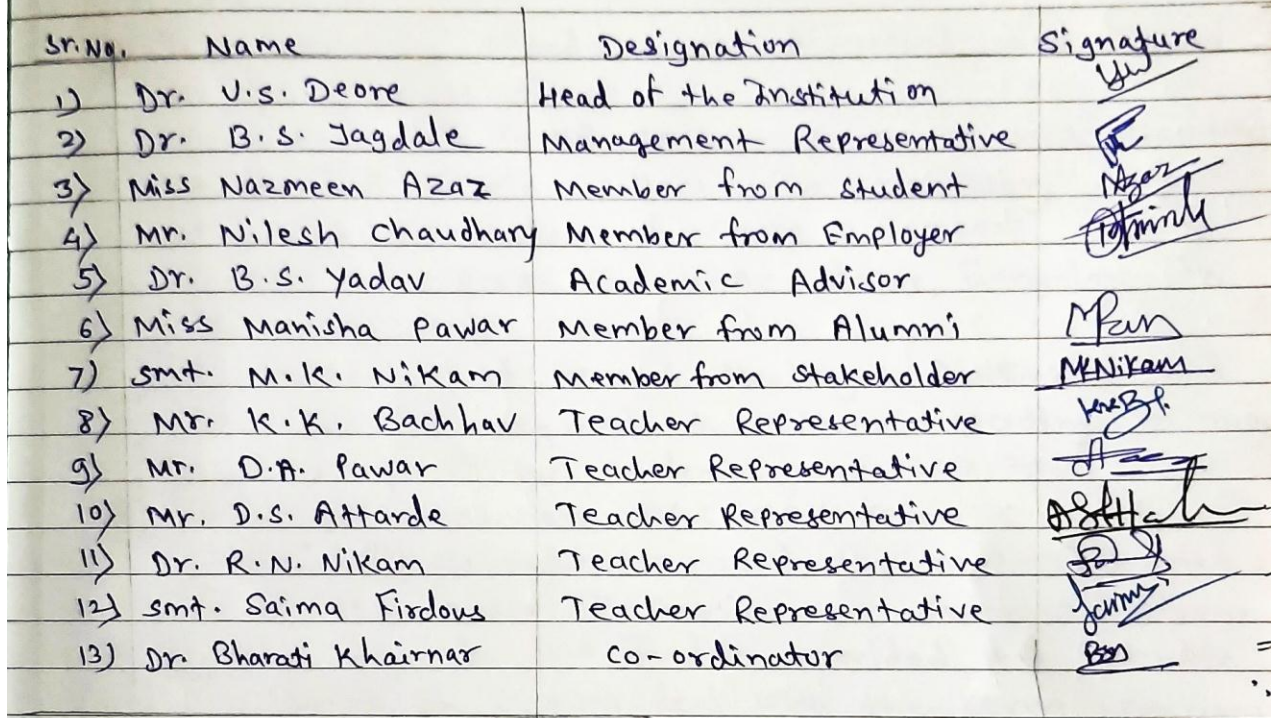 Sr.No. Name Designation Signature
1) Dr. V.S. Deore Head of the Institution
2) Dr. B.S. Jagdale Management Representative
3) Miss Nazmeen Azaz Member from Student NAzaz
4) Mr. Nilesh Chaudhary Member from Employer
5) Dr. B.S. Yadav Academic Advisor
6) Miss Manisha Pawar Member from Alumni
7) Smt. M.K. Nikam Member from Stakeholder MKNikam
8) Mr. K.K. Bachhav Teacher Representative
9) Mr. D.A. Pawar Teacher Representative
10) Mr. D.S. Attarde Teacher Representative
11) Dr. R.N. Nikam Teacher Representative
12) Smt. Saima Firdous Teacher Representative
13) Dr. Bharati Khairnar Co-ordinator